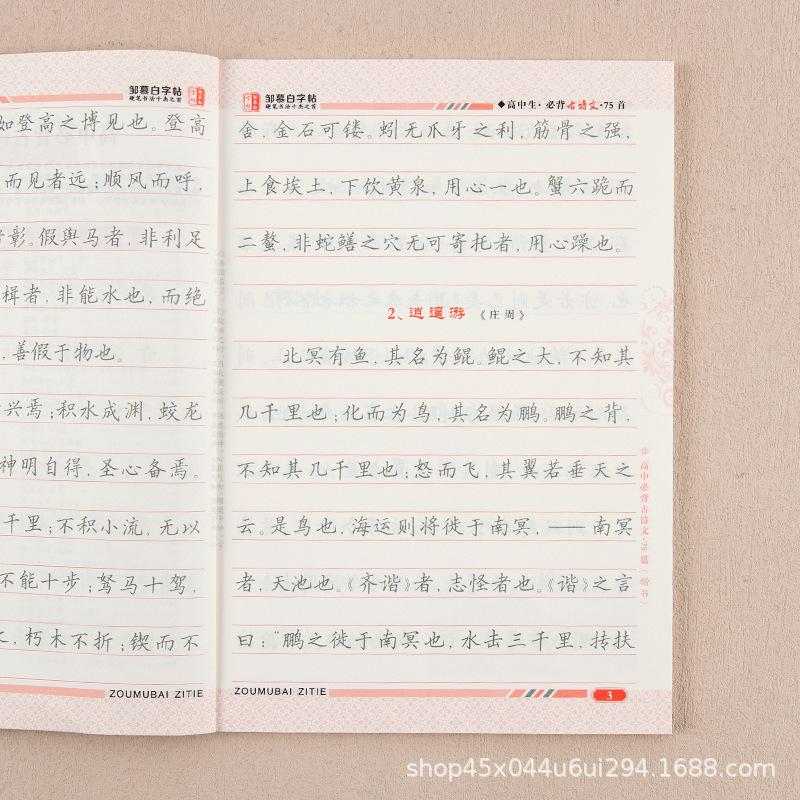 邹慕白字帖
硬笔书法十杰之首
如登高之博见也。登高
而见者远；顺风而呼，
彰。假舆马者，非利足
楫者，非能水也，而绝
，善假于物也。
兴焉；积水成渊，蛟龙
神明自得，圣心备焉。
千里；不积小流，无以
不能十步；驽马十驾，
，朽木不折；锲而不
ZOUMUBAI ZITIE
邹慕白字帖
硬笔书法十杰之首
◆高中生·必背古诗文·75首
舍，金石可镂。蚓无爪牙之利，筋骨之强，
上食埃土，下饮黄泉，用心一也。蟹六跪而
二螯，非蛇鳝之穴无可寄托者，用心躁也。
2、逍遥游 《庄周》
北冥有鱼，其名为鲲。鲲之大，不知其
几千里也；化而为鸟，其名为鹏。鹏之背，
不知其几千里也；怒而飞，其翼若垂天之
云。是鸟也，海运则将徙于南冥，——南冥
者，天池也。《齐谐》者，志怪者也。《谐》之言
曰：“鹏之徙于南冥也，水击三千里，抟扶
高中必背古诗文·75篇（楷书）
ZOUMUBAI ZITIE
3
shop45x044u6ui294.1688.com